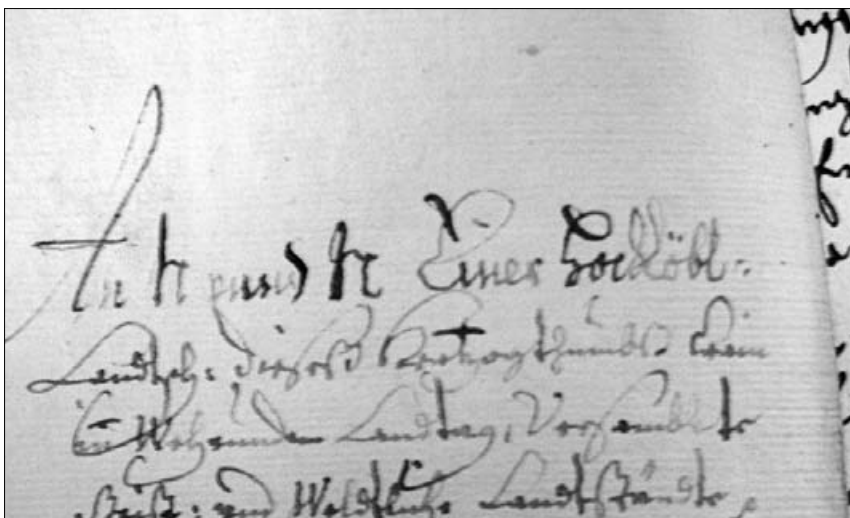 An H und H Einer Hochlöbl:
Landtsch: dieses Hertzogthumbs Crain
in Wehrunden Landtag, Versamblte
Geist: und Weldtliche Landtständte